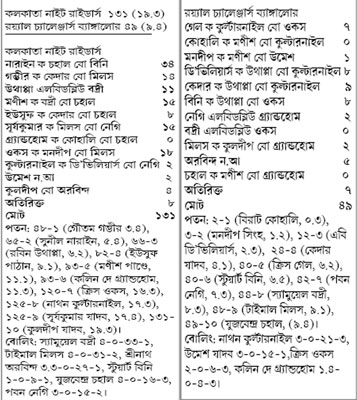 কলকাতা নাইট রাইডার্স ১৩১ (১৯.৩)
রয়্যাল চ্যালেঞ্জার্স ব্যাঙ্গালোর ৪৯ (৯.৪)
কলকাতা নাইট রাইডার্স
নারাইন ক চহাল বো বিনি ৩৪
গম্ভীর ক কেদার বো মিলস ১৪
উথাপ্পা এলবিডব্লিউ বদ্রী ১১
মণীশ ক বদ্রী বো চহাল ১৫
ইউসুফ ক কেদার বো চহাল ৮
সূর্যকুমার ক মিলস বো নেগি ১৫
গ্র্যান্ডহোম ক কোহালি বো চহাল ০
ওকস ক মনদীপ বো মিলস ১৮
কুল্টারনাইল ক ডি'ভিলিয়ার্স বো নেগি ২
উমেশ ন.আ ২
কুলদীপ বো অরবিন্দ ৪
অতিরিক্ত ৮
মোট ১৩১
পতন: ৪৮-১ (গৌতম গম্ভীর ৩.৪),
৬৫-২ (সুনীল নারাইন, ৫.৪), ৬৬-৩
(রবিন উথাপ্পা, ৬.২), ৮২-৪ (ইউসুফ
পাঠান, ৯.১), ৯৩-৫ (মণীশ পাণ্ডে,
১১.১), ৯৩-৬ (কলিন দে গ্র্যান্ডহোম,
১১.৩), ১২০-৭ (ক্রিস ওকস, ১৬.৩),
১২৫-৮ (নাথন কুল্টারনাইল, ১৭.৩),
১২৫-৯ (সূর্যকুমার যাদব, ১৭.৪), ১৩১-
১০ (কুলদীপ যাদব, ১৯.৩)।
বোলিং: স্যামুয়েল বদ্রী ৪-০-৩৩-১,
টাইমাল মিলস ৪-০-৩১-২, শ্রীনাথ
অরবিন্দ ৩.৩-০-২৭-১, স্টুয়ার্ট বিনি
১-০-৯-১, যুজবেন্দ্র চহাল ৪-০-১৬-৩,
পবন নেগি ৩-০-১৫-২।
রয়্যাল চ্যালেঞ্জার্স ব্যাঙ্গালোর
গেল ক কুল্টারনাইল বো ওকস ৭
কোহালি ক মণীশ বো কুল্টারনাইল ০
মনদীপ ক মণীশ বো উমেশ ১
ডি'ভিলিয়ার্স ক উথাপ্পা বো কুল্টারনাইল ৮
কেদার ক উথাপ্পা বো কুল্টারনাইল ৯
বিনি ক উথাপ্পা বো ওকস ৮
নেগি এলবিডব্লিউ গ্র্যান্ডহোম ২
বদ্রী এলবিডব্লিউ ওকস ০
মিলস ক কুল্টারনাইল বো গ্র্যান্ডহোম ২
অরবিন্দ ন.আ ৫
চহাল ক মণীশ বো গ্র্যান্ডহোম ০
অতিরিক্ত ৭
মোট ৪৯
পতন: ২-১ (বিরাট কোহালি, ০.৩),
৩-২ (মনদীপ সিংহ, ১.২), ১২-৩ (এবি
ডি'ভিলিয়ার্স, ২.৩), ২৪-৪ (কেদার
যাদব, ৪.১), ৪০-৫ (ক্রিস গেল, ৬.২),
৪০-৬ (স্টুয়ার্ট বিনি, ৬.৫), ৪২-৭ (পবন
নেগি, ৭.৩), ৪৪-৮ (স্যামুয়েল বদ্রী,
৮.৩), ৪৮-৯ (টাইমাল মিলস, ৯.১),
৪৯-১০ (যুজবেন্দ্র চহাল, (৯.৪)।
বোলিং: নাথন কুল্টারনাইল ৩-০-২১-৩,
উমেশ যাদব ৩-০-১৫-১, ক্রিস ওকস
২-০-৬-৩, কলিন দে গ্র্যান্ডহোম ১.৪-
০-৪-৩।